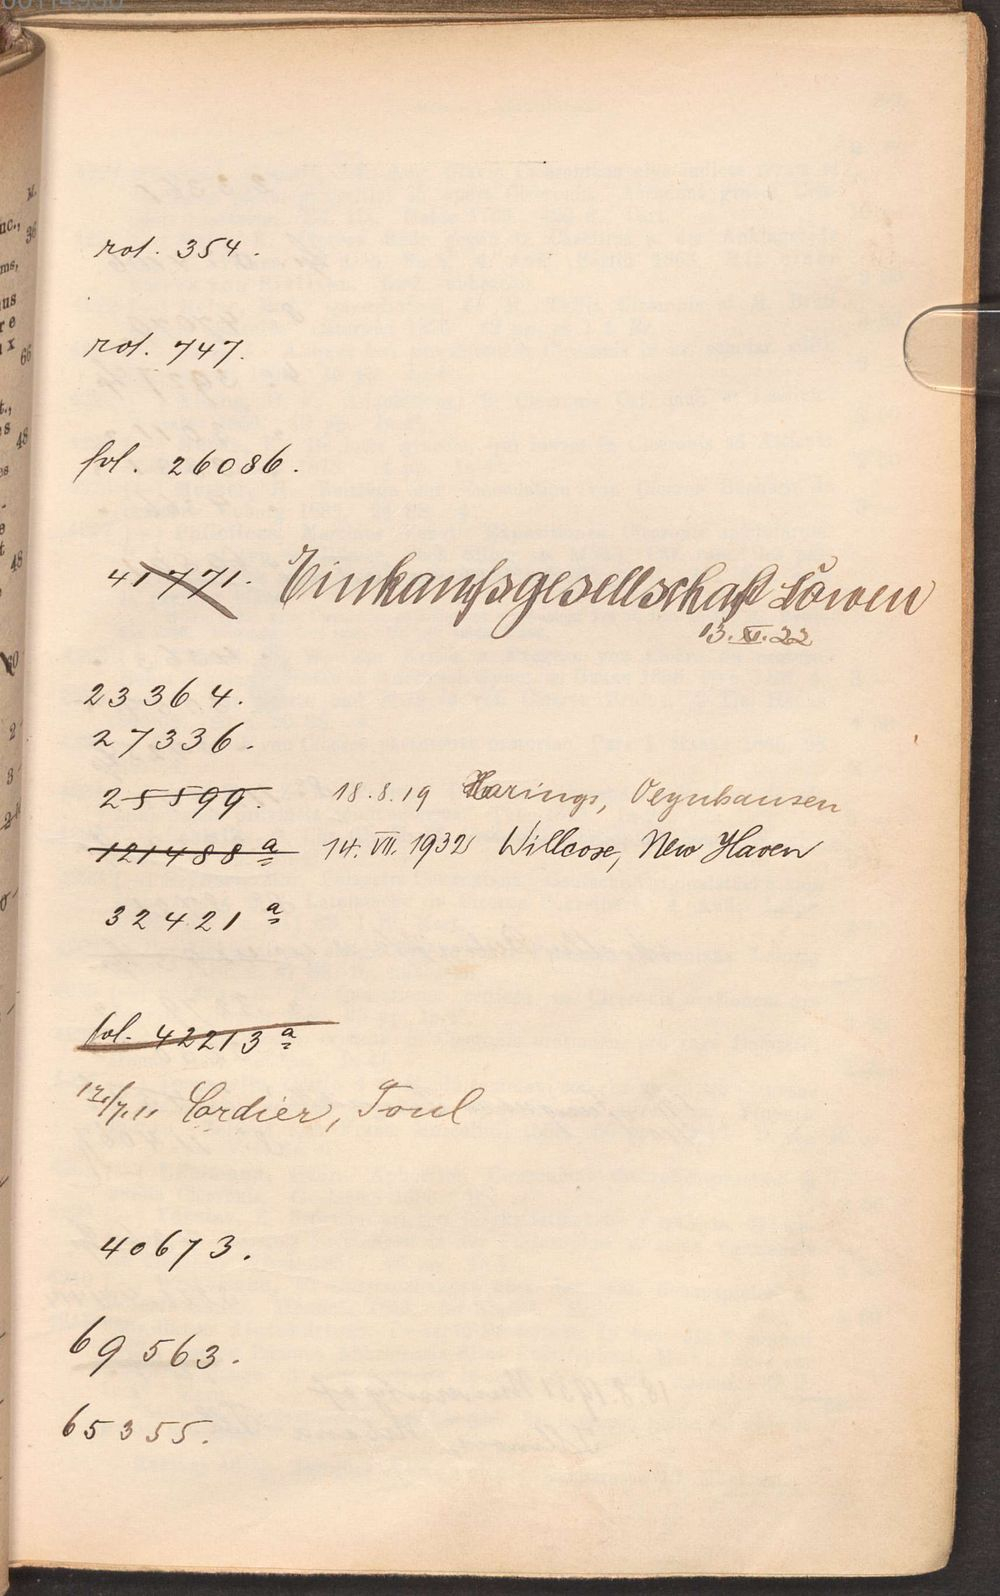 rot. 354.
rot. 747.
fol. 26086.
41771. Einkaufsgesellschaft Löwen
13. XI. 22
23364.
27336.
25599. 18.8.19 Harings, Oeynhausen
121488 a 14. VII. 1932 Willcox, New Haven
32421 a
fol. 42213 a
Cordier, Toul
40673.
69563.
65355.